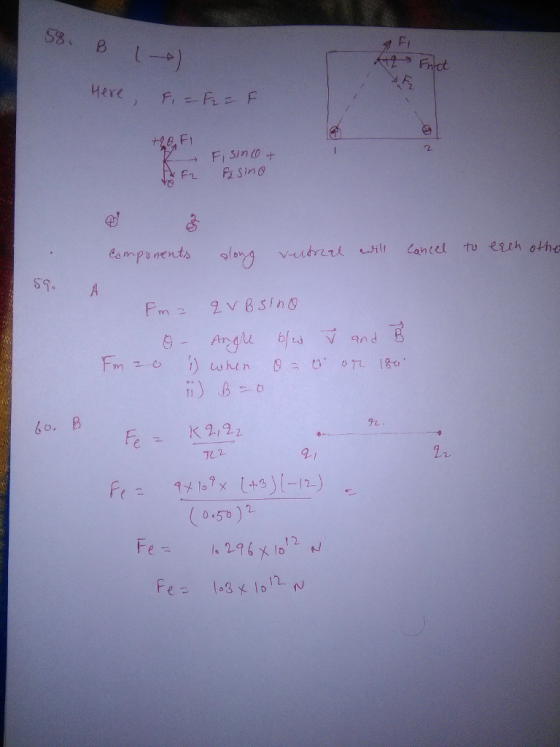 58. B (→)
F1
q Fnet
F2
Here, F1 = F2 = F
1 2
+q θ F1
F1 sinθ +
F2 F2 sinθ
θ
components along vertical will cancel to each othe
59. A
Fm = qVB sinθ
θ - Angle b/w V⃗ and B⃗
Fm = 0 i) when θ = 0° or 180°
ii) B = 0
60. B
Fe = K q1 q2 / r²
r.
q1 q2
Fe = 9 × 10⁹ × (+3)(-12) / (0.50)² =
Fe = 1.296 × 10¹² N
Fe = 1.3 × 10¹² N